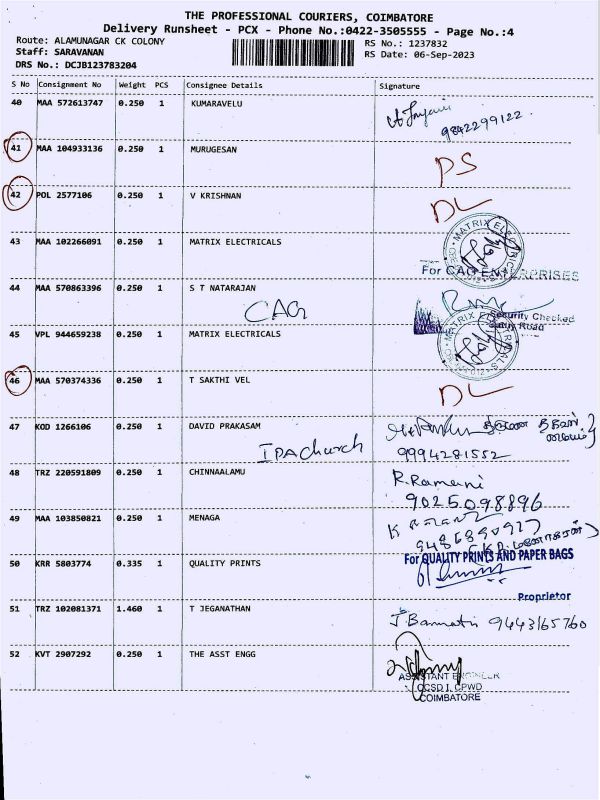 THE PROFESSIONAL COURIERS, COIMBATORE
Delivery Runsheet - PCX - Phone No.:0422-3505555 - Page No.:4
Route: ALAMUNAGAR CK COLONY
RS No.: 1237832
Staff: SARAVANAN
RS Date: 06-Sep-2023
DRS No.: DCJB123783204
S No Consignment No Weight PCS Consignee Details Signature
40 MAA 572613747 0.250 1 KUMARAVELU
9842299122
41 MAA 104933136 0.250 1 MURUGESAN PS
42 POL 2577106 0.250 1 V KRISHNAN DL
43 MAA 102266091 0.250 1 MATRIX ELECTRICALS
For CAG ENTERPRISES
44 MAA 570863396 0.250 1 S T NATARAJAN
CAG
Security Checked
45 VPL 944659238 0.250 1 MATRIX ELECTRICALS
46 MAA 570374336 0.250 1 T SAKTHI VEL DL
47 KOD 1266106 0.250 1 DAVID PRAKASAM
IPA church 9994281552
48 TRZ 220591809 0.250 1 CHINNAALAMU R.Ramani
9025098896
49 MAA 103850821 0.250 1 MENAGA
50 KRR 5803774 0.335 1 QUALITY PRINTS For QUALITY PRINTS AND PAPER BAGS
Proprietor
51 TRZ 102081371 1.460 1 T JEGANATHAN 9443165760
52 KVT 2907292 0.250 1 THE ASST ENGG
ASSISTANT ENGINEER
CCSD I, CPWD
COIMBATORE